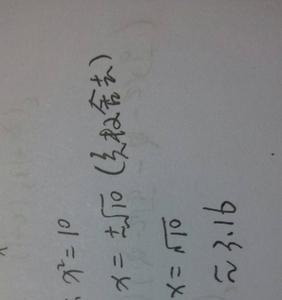 x²=10
x=±√10 (负根舍去)
x=√10
≈3.16